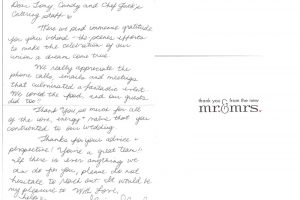 Dear Tony, Candy and Chef Jack's
Catering Staff -
Here we find immense gratitude
for your behind-the-scenes efforts
to make the celebration of our
union a dream come true.
We really appreciate the
phone calls, emails and meetings
that culminated a fantastic event.
We loved the food and our guests
did too!
Thank you so much for all
of the care, energy + naive that you
contributed to our wedding.
Thanks for your advice +
perspective! You're a great team!!
If there is ever anything we
can do for you, please do not
hesitate to reach out. It would be
my pleasure to With Love,
help
thank you from the new
mr. & mrs.